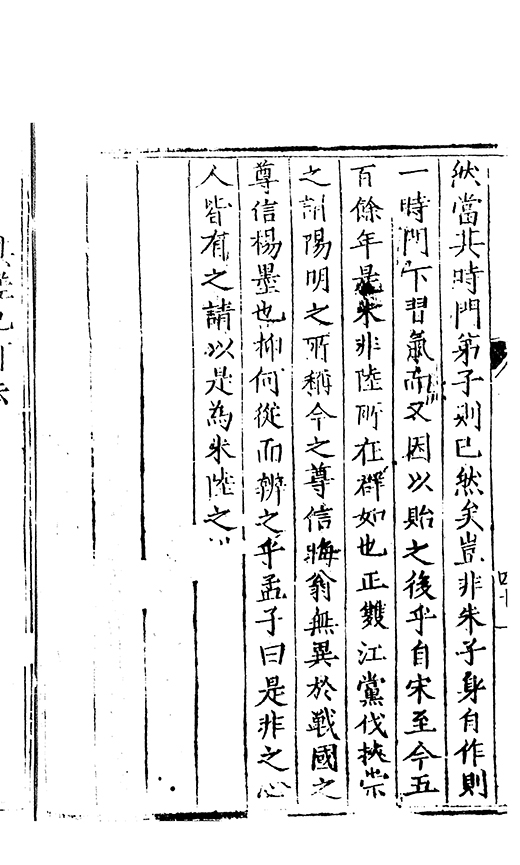 然當其時門第子則已然矣豈非朱子身自作則
一時門下習氣而又因以貽之後乎自宋至今五
百餘年是朱非陸所在群如也正雙江黨伐挾崇
之謂陽明之所稱今之尊信晦翁無異於戰國之
尊信楊墨也抑何從而辨之乎孟子曰是非之心
人皆有之請以是為朱陸之